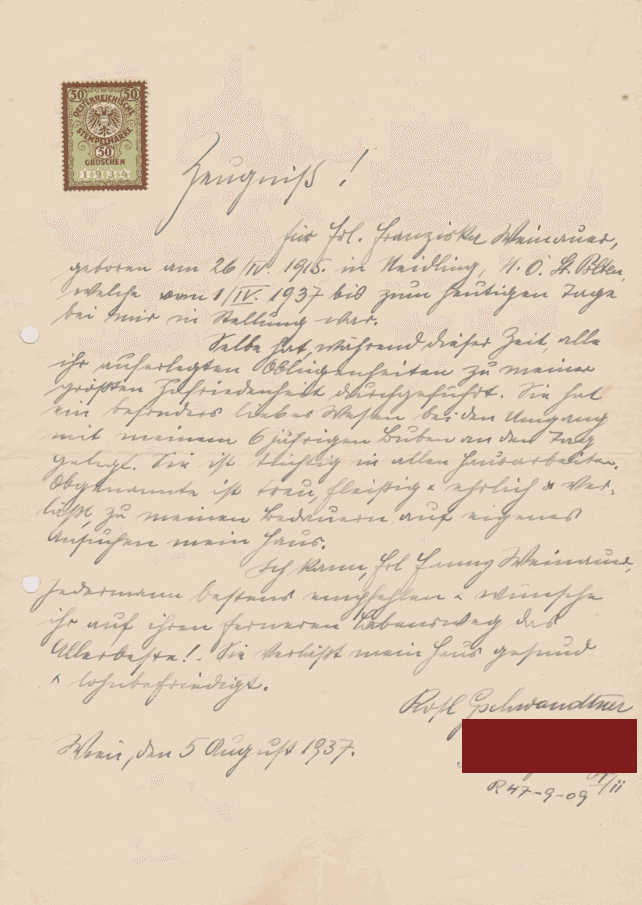 50 50
OESTERREICHISCHE
STEMPELMARKE
50
GROSCHEN
1934
Zeugniß!
für Frl. Franziska Weinauer,
geboren am 26/IV. 1915. in Neidling, N. Ö. St. Pölten,
welche vom 1/IV. 1937 bis zum heutigen Tage
bei mir in Stellung war.
Selbe hat, während dieser Zeit, alle
ihr auferlegten Obliegenheiten zu meiner
größten Zufriedenheit durchgeführt. Sie hat
ein besonders liebes Wesen bei den Umgang
mit meinem 6 jährigen Buben an den Tag
gelegt. Sie ist tüchtig in allen Hausarbeiten.
Obgenannte ist treu, fleißig & ehrlich & ver-
läßt, zu meinen Bedauern auf eigenes
Ansuchen mein Haus.
Ich kann, Frl Fanny Weinauer,
Jedermann bestens empfehlen & wünsche
ihr auf ihren ferneren Lebensweg das
Allerbeste! Sie verläßt mein Haus gesund
& lohnbefriedigt.
Rosl Gschwandtner
Wien, den 5 August 1937.
R 47-9-09